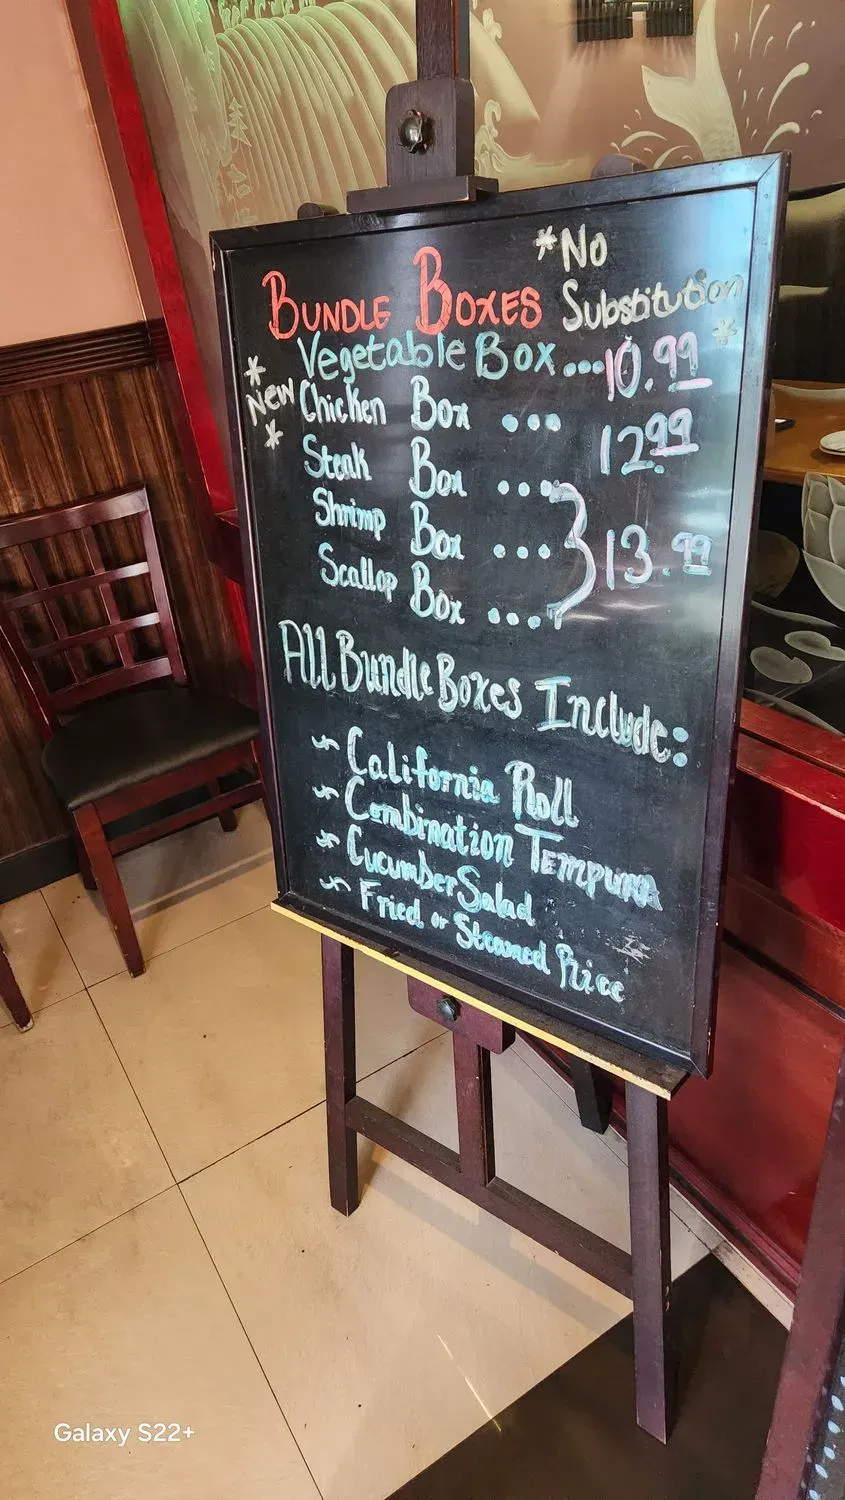 *No
Substitution*
BUNDLE BOXES
Vegetable Box...10.99
*New* Chicken Box ... 12.99
Steak Box ...
Shrimp Box ... } 13.99
Scallop Box ....
All Bundle Boxes Include:
~ California Roll
~ Combination TEMPURA
~ Cucumber Salad
~ Fried or Steamed Rice
Galaxy S22+